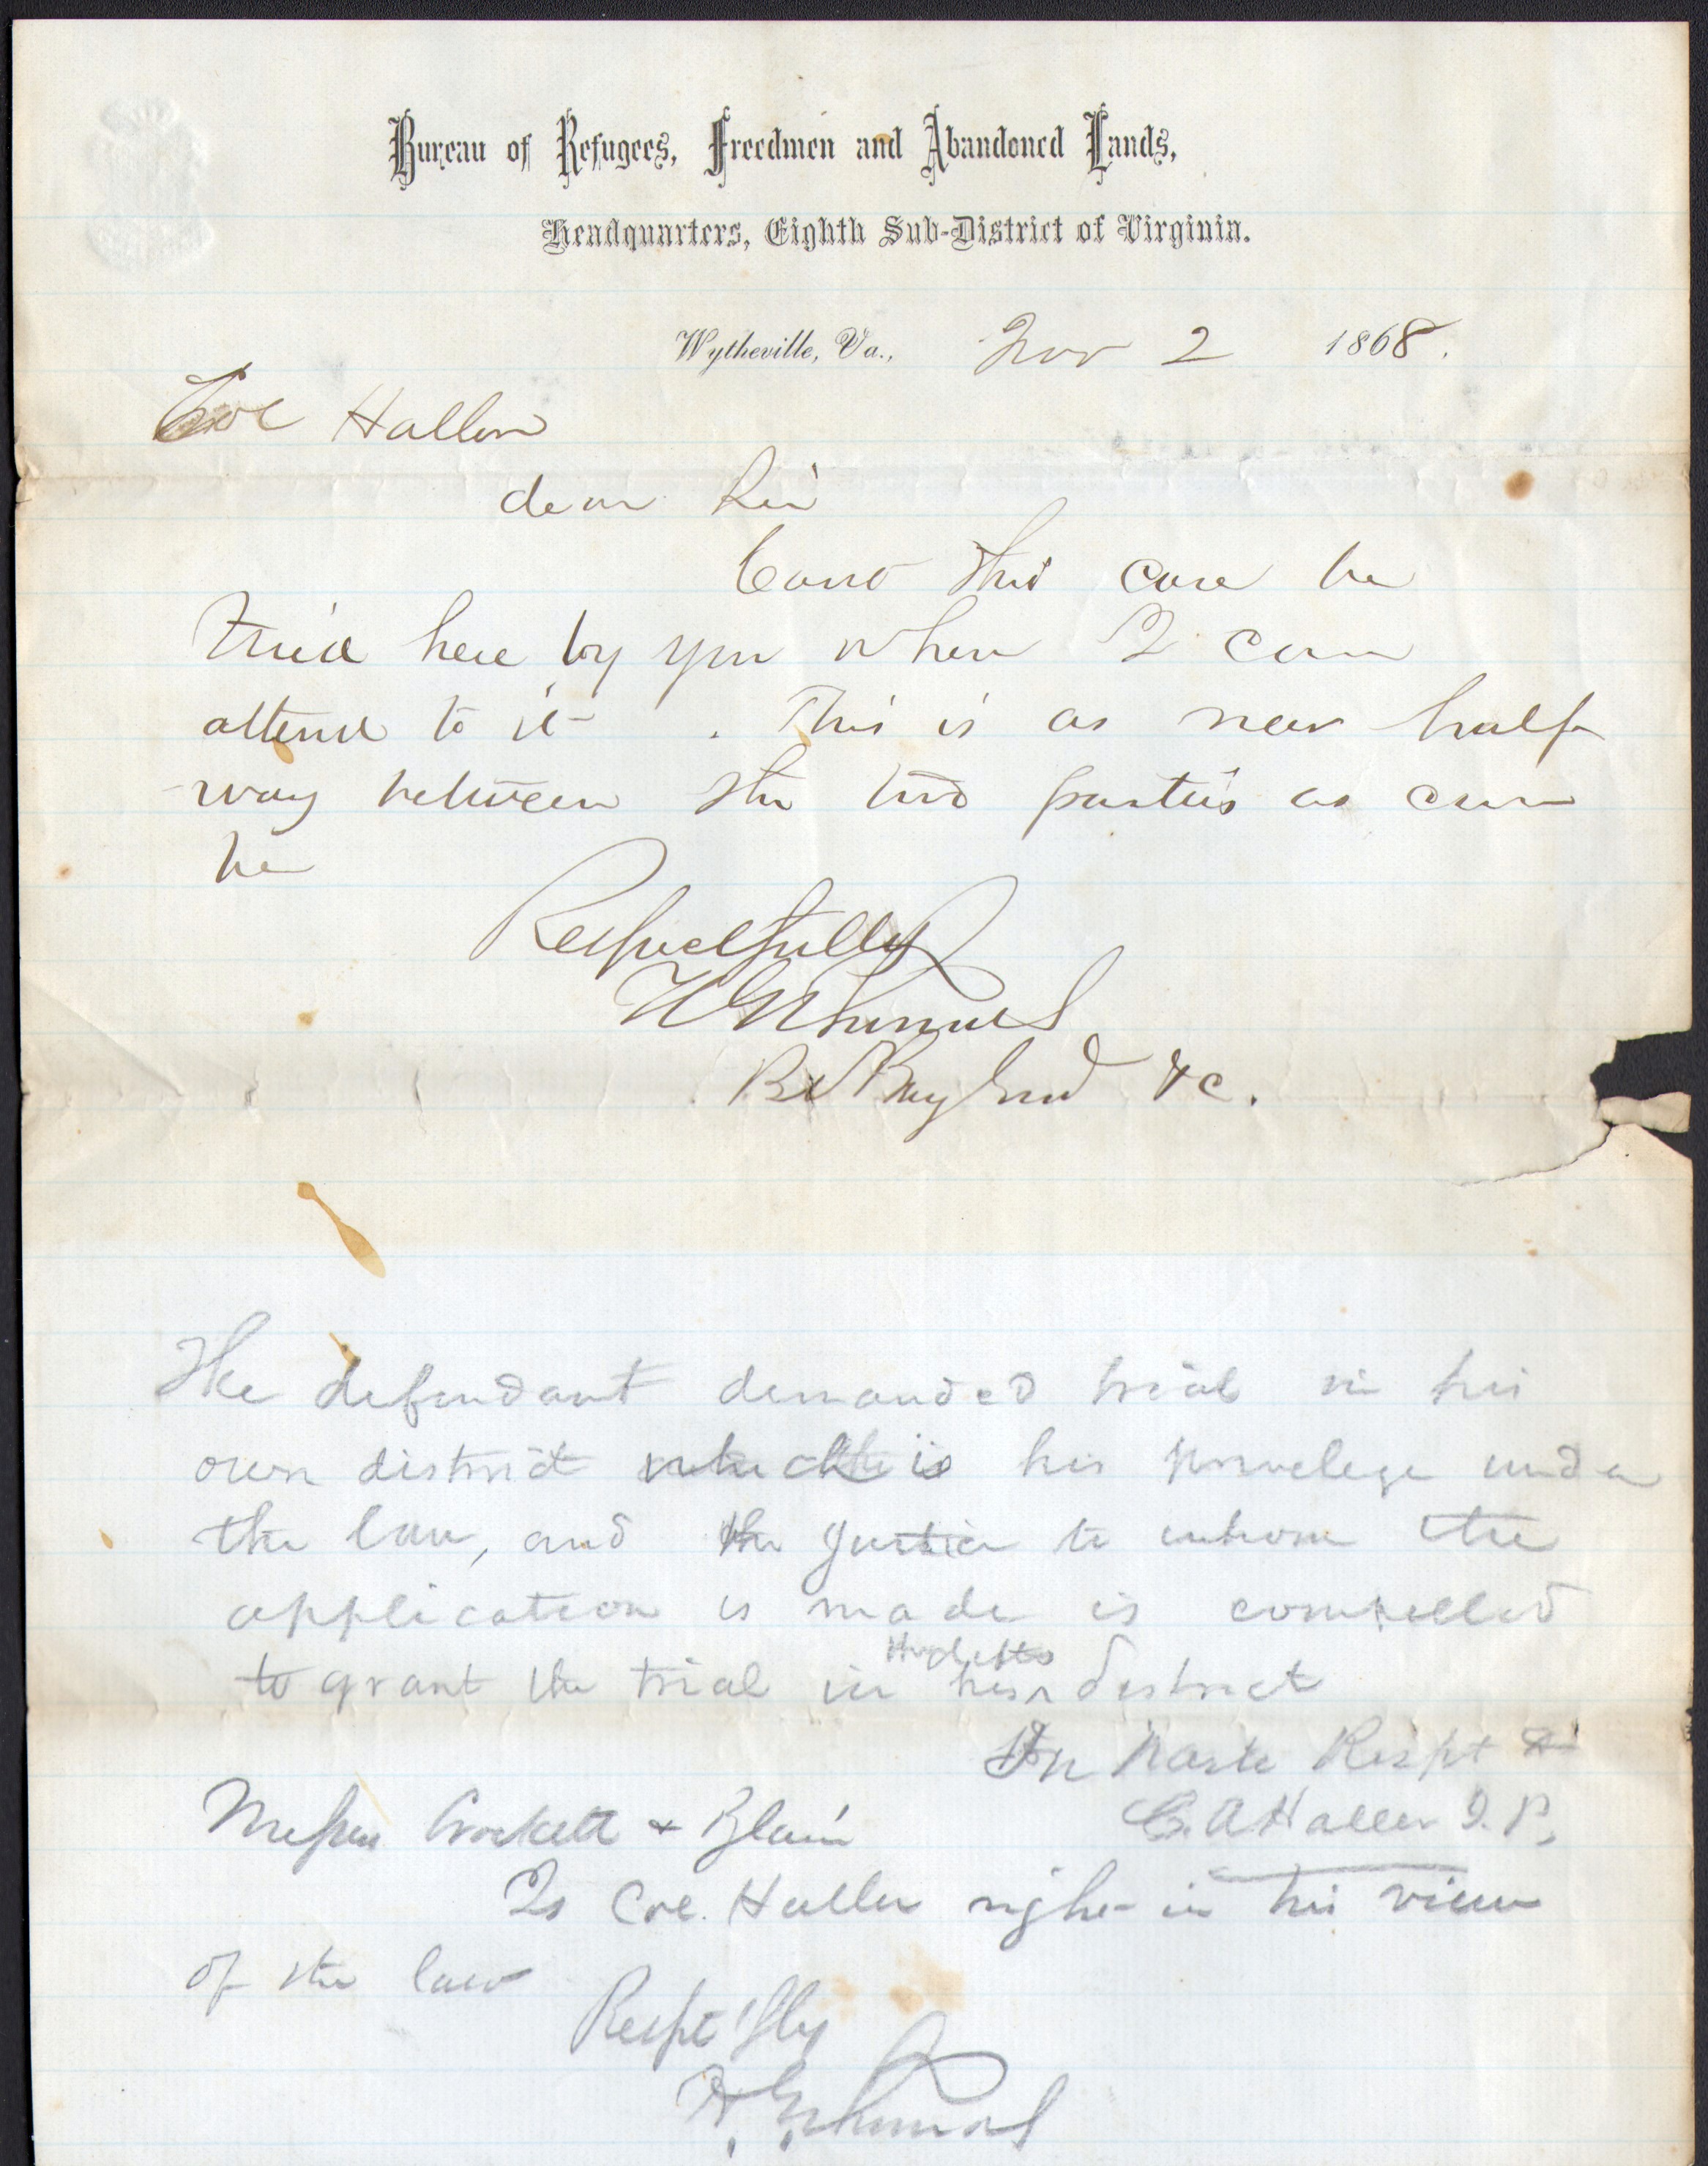 Bureau of Refugees, Freedmen and Abandoned Lands,
Headquarters, Eighth Sub-District of Virginia.
Wytheville, Va., Nov 2 1868.
Col Haller
dear Sir
Cant this case be
tried here by you when I can
attend to it . This is as near half
way between the two parties as can
be
Respectfully
Bt Brig Genl &c.
The defendant demanded trial in his
own district which is his privelege under
the law, and the Justice to whom the
application is made is compelled
to grant the trial in his district
In haste Respt
C. A Haller J. P.
Messrs Crockett & Blair
Is Col. Haller right in his view
of the law
Respt'fly